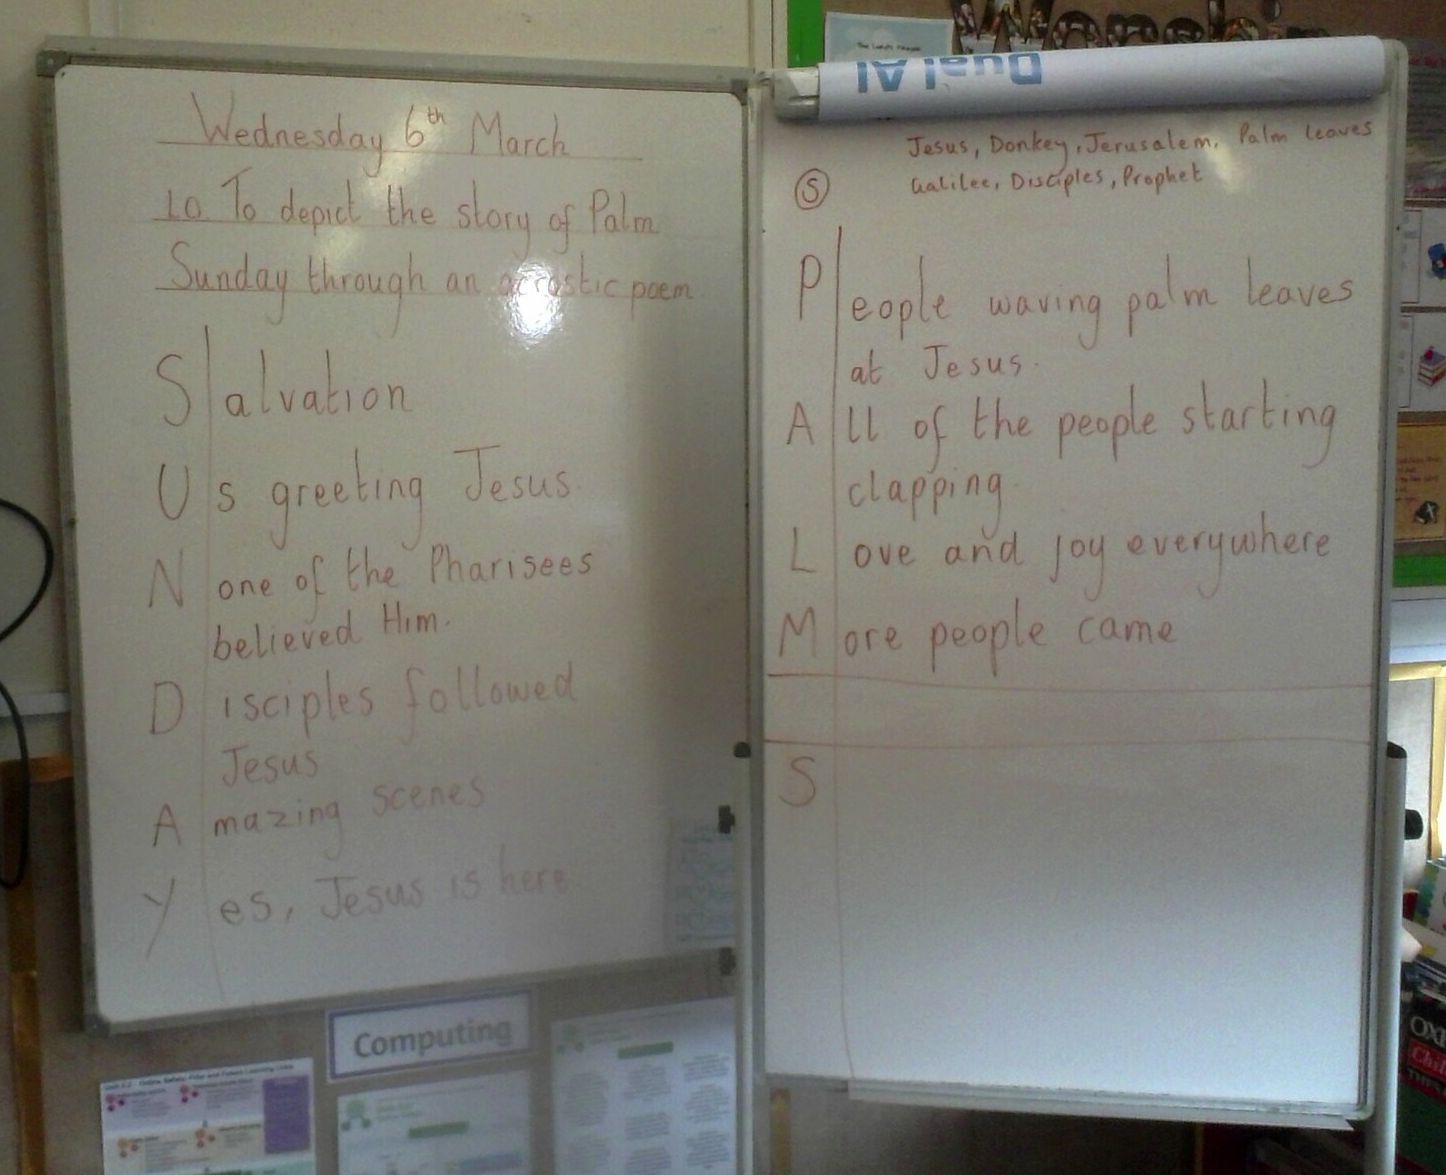 Wednesday 6th March
LO To depict the story of Palm
Sunday through an acrostic poem
S alvation
U s greeting Jesus.
N one of the Pharisees
believed Him.
D isciples followed
Jesus
A mazing scenes
Y es, Jesus is here
Dual AI
Jesus, Donkey, Jerusalem, Palm leaves
Galilee, Disciples, Prophet
S
P eople waving palm leaves
at Jesus.
A ll of the people starting
clapping.
L ove and joy everywhere
M ore people came
S
Computing